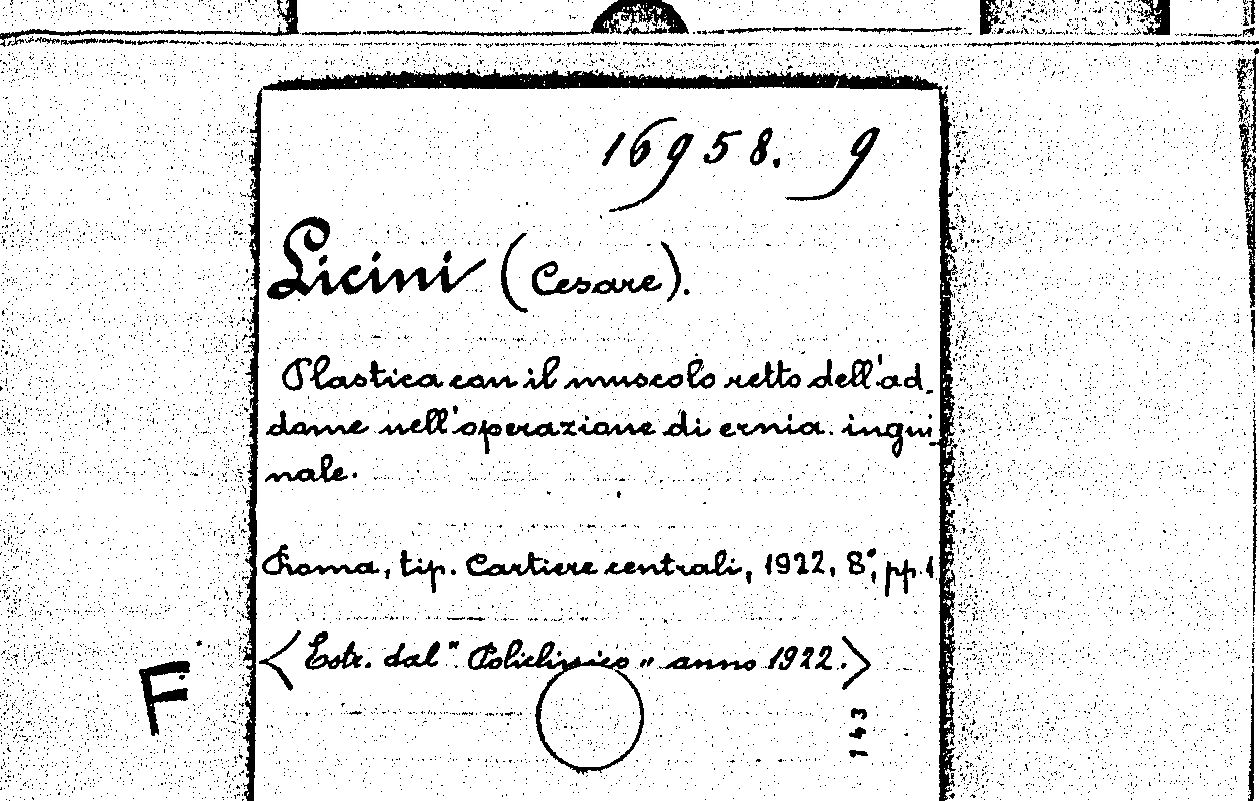 16958. 9
Licini (Cesare).
Plastica con il muscolo retto dell'ad-
dome nell'operazione di ernia ingui-
nale.
Roma, tip. Cartiere centrali, 1922, 8°, pp. 1
<Estr. dal "Policlinico" anno 1922.>
F
143